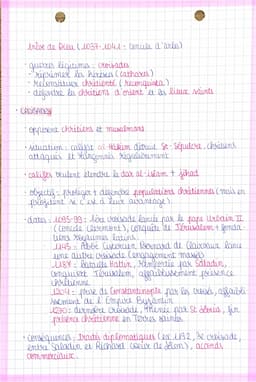 trêve de Dieu (1037-1041 : concile d'Arles)
- guerres légitimes : croisades
- réprimer les hérésies (cathares)
- reconstituer chrétienté (reconquista)
- défendre les chrétiens d'orient et les lieux saints
• CROISADES
- opposent chrétiens et musulmans
- situation : calife al-Hakim détruit St-Sépulcre, chrétiens
attaqués et rançonnés régulièrement
- califes veulent étendre le dar al-islam + jihad
- objectifs : protéger + défendre populations chrétiennes (mais en
profitent si c'est à leur avantage)
- dates : 1095-99 : 1ère croisade lancée par le pape Urbain II
(concile Clermont), conquête de Jérusalem + fonda-
tions royaumes latins.
1145 : Abbé Cistercien Bernard de Clairvaux lance
une autre croisade (engagement massif)
1187 : bataille Hattin, remportée par Saladin,
conquiert Jérusalem, affaiblissement présence
chrétienne
1204 : prise de Constantinople par les croisés, affaiblis-
sement de l'Empire Byzantin
1270 : dernière croisade, menée par St Louis, fin
présence chrétienne en Terres saintes
- conséquences : Traités diplomatiques (ex 1192, 3e croisade,
entre Saladin et Richard Coeur de Lion), accords
commerciaux